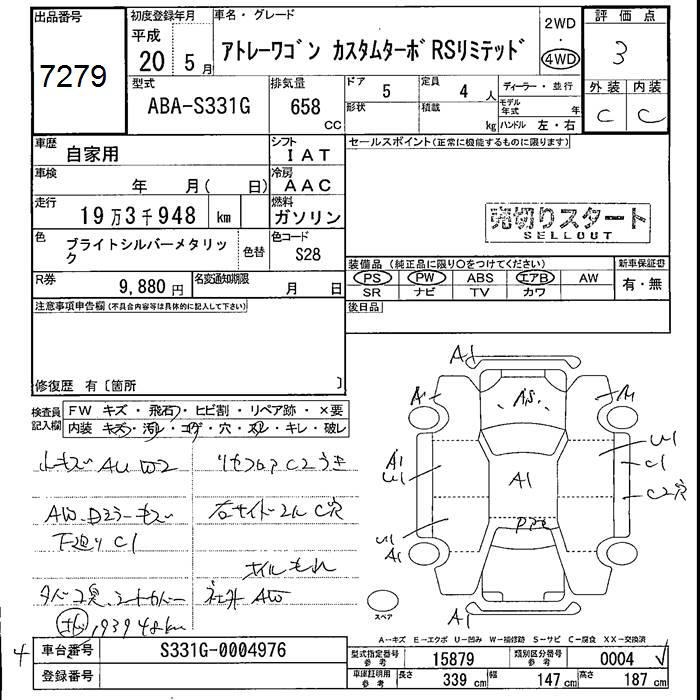 出品番号
7279
初度登録年月
平成
20年 5月
車名・グレード
アトレーワゴン カスタムターボRSリミテッド
2WD
・
4WD
評価点
3
外装 内装
C C
型式
ABA-S331G
排気量
658
CC
ドア
5
形状
定員
4人
積載
kg
ディーラー・並行
モデル年式 年
ハンドル 左・右
車歴
自家用
シフト
IAT
車検
年 月( 日)
冷房
AAC
走行
19万3千948 km
燃料
ガソリン
色
ブライトシルバーメタリック
色替
色コード
S28
R券
9,880円
名変通知期限
月 日
セールスポイント(正常に機能するものに限ります)
売切りスタート
SELLOUT
装備品(純正品に限り○をつけてください)
PS PW ABS エアB AW
SR ナビ TV カワ
新車保証書
有・無
後日品
注意事項申告欄(不具合内容等は具体的に記入して下さい)
修復歴 有〔箇所 〕
検査員記入欄
FW キズ・飛石・ヒビ割・リペア跡・×要
内装 キズ・汚れ・コゲ・穴・スレ・キレ・破レ
小キズ AU W2
リヤフロア C2うき
下廻り C1
C穴
オイルもれ
社外AW
A1
A
A
A1
U1
A1
C1
C2穴
U1
A1
A1
スペア
A-キズ E-エクボ U-凹み W-補修跡 S-サビ C-腐食 XX-交換済
4
車台番号
S331G-0004976
登録番号
型式指定番号
参考
15879
類別区分番号
参考
0004
車庫証明用
参考
長さ
339 cm
幅
147 cm
高さ
187 cm